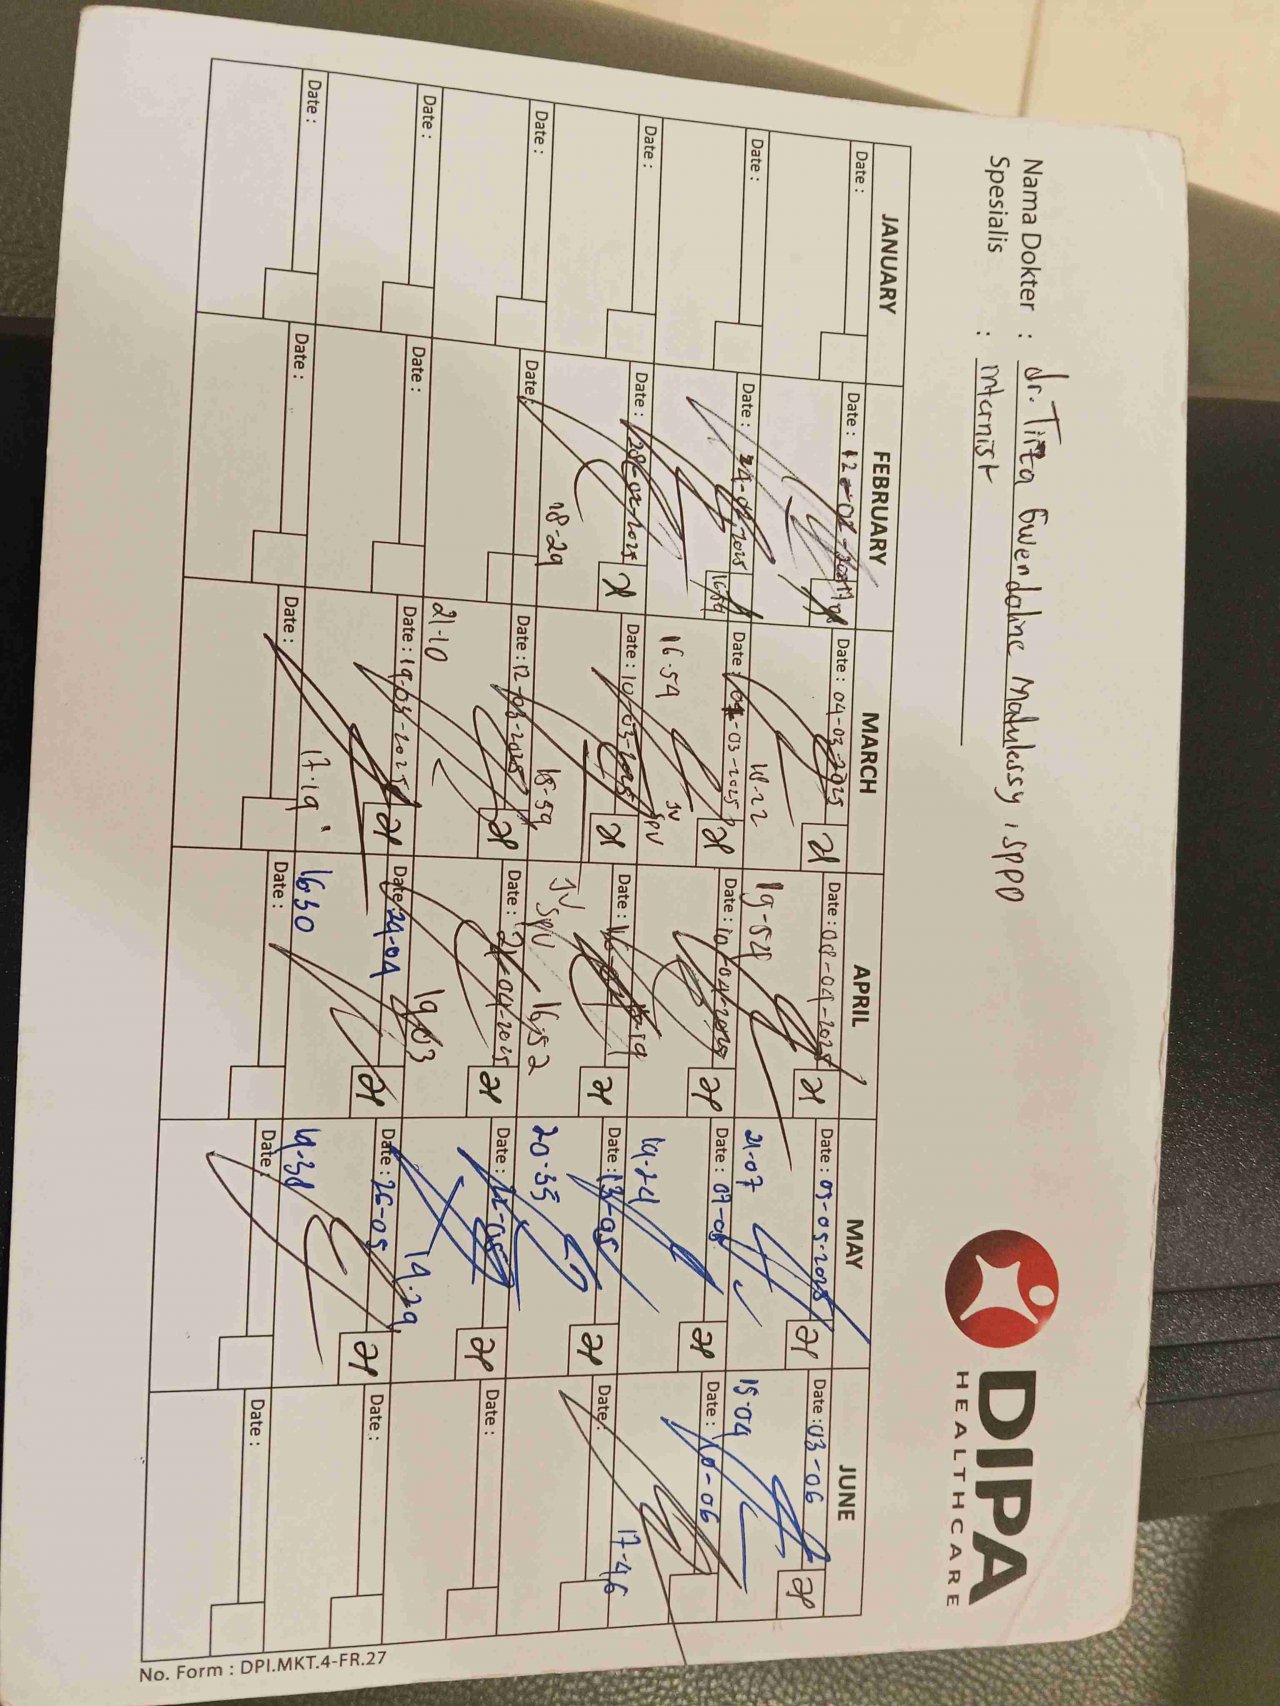 DIPA
HEALTHCARE
Nama Dokter : dr. Tirta Gwendoline Matulessy, SPPD
Spesialis : Internist
JANUARY FEBRUARY MARCH APRIL MAY JUNE
Date : Date : 12-02-2025 Date : 04-03-2025 Date : 08-04-2025 Date : 05-05-2025 Date : 03-06
18-22 19-58 21-07 15-04
Date : Date : 24-02-2025 Date : 07-03-2025 Date : 10-04-2025 Date : 07-05 Date : 10-06
16-54 19-24 17-46
Date : Date : 28-02-2025 Date : 10-03-2025 Date : Date : 13-05 Date :
18-29 18-59 JV SPV 16-52 20-35
Date : Date : Date : 12-03-2025 Date : 21-04-2025 Date : Date :
21-10 19-03 19.29
Date : Date : Date : 19-03-2025 Date : 24-04 Date : 26-05 Date :
17-19 16.30 19-38
Date : Date : Date : Date : Date : Date :
No. Form : DPI.MKT.4-FR.27